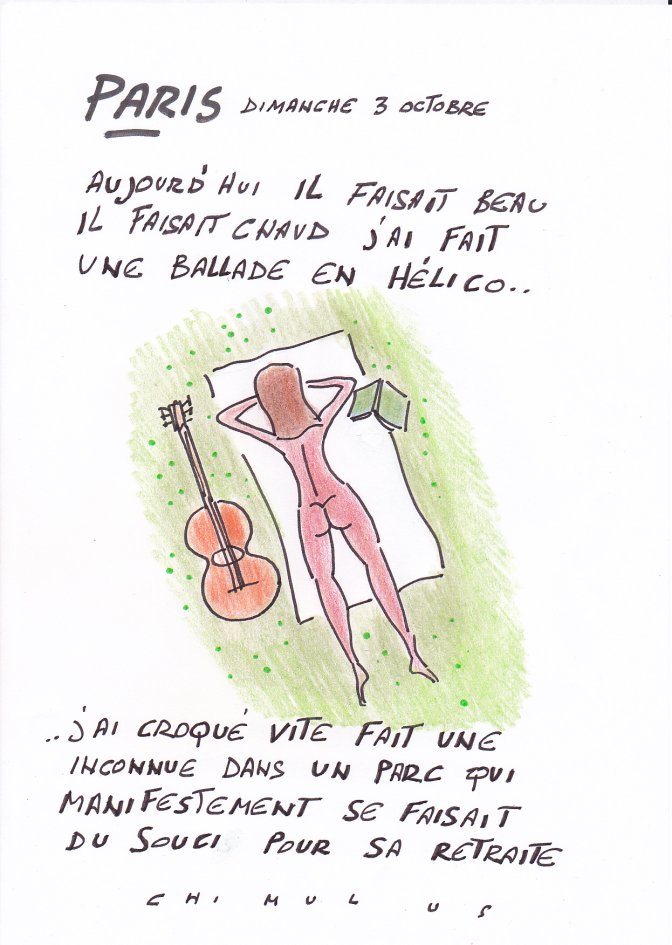 PARIS DIMANCHE 3 OCTOBRE
AUJOURD'HUI IL FAISAIT BEAU
IL FAISAIT CHAUD J'AI FAIT
UNE BALLADE EN HÉLICO..
..J'AI CROQUÉ VITE FAIT UNE
INCONNUE DANS UN PARC QUI
MANIFESTEMENT SE FAISAIT
DU SOUCI POUR SA RETRAITE
CHIMULUS